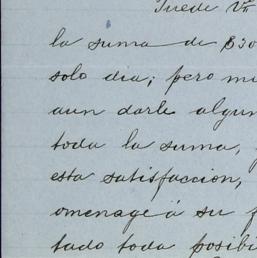 Puede Vn
la suma de $30
solo dia; pero mi
aun darle algun
toda la suma,
esta satisfaccion,
omenage á su
tado toda posibi